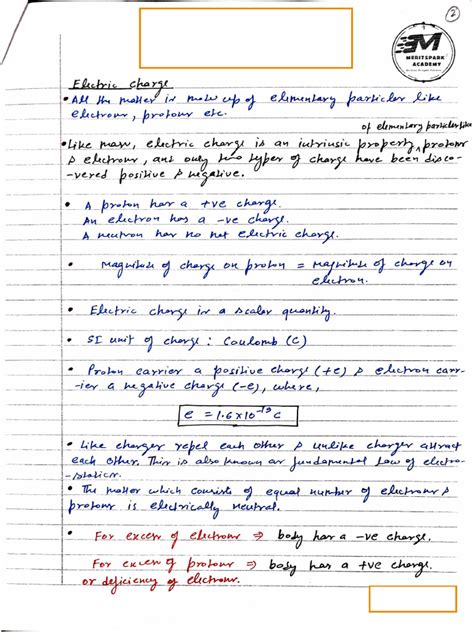 2
MERITSPARK
ACADEMY
Electric charge
• All the matter is made up of elementary particles like
electrons, protons etc.
of elementary particles like
• Like mass, electric charge is an intrinsic property protons
& electrons, and only two types of charge have been disco-
-vered positive & negative.
• A proton has a +ve charge.
An electron has a -ve charge.
A neutron has no net electric charge.
• Magnitude of charge on proton = Magnitude of charge on
electron.
• Electric charge is a scalar quantity.
• SI unit of charge : Coulomb (C)
• Proton carries a positive charge (+e) & electron carr-
-ies a negative charge (-e), where,
e = 1.6×10⁻¹⁹ C
• Like charges repel each other & unlike charges attract
each other. This is also known as fundamental law of electro-
-statics.
• The matter which consists of equal number of electrons &
protons is electrically neutral.
• For excess of electrons ⇒ body has a -ve charge.
For excess of protons ⇒ body has a +ve charge.
or deficiency of electrons.